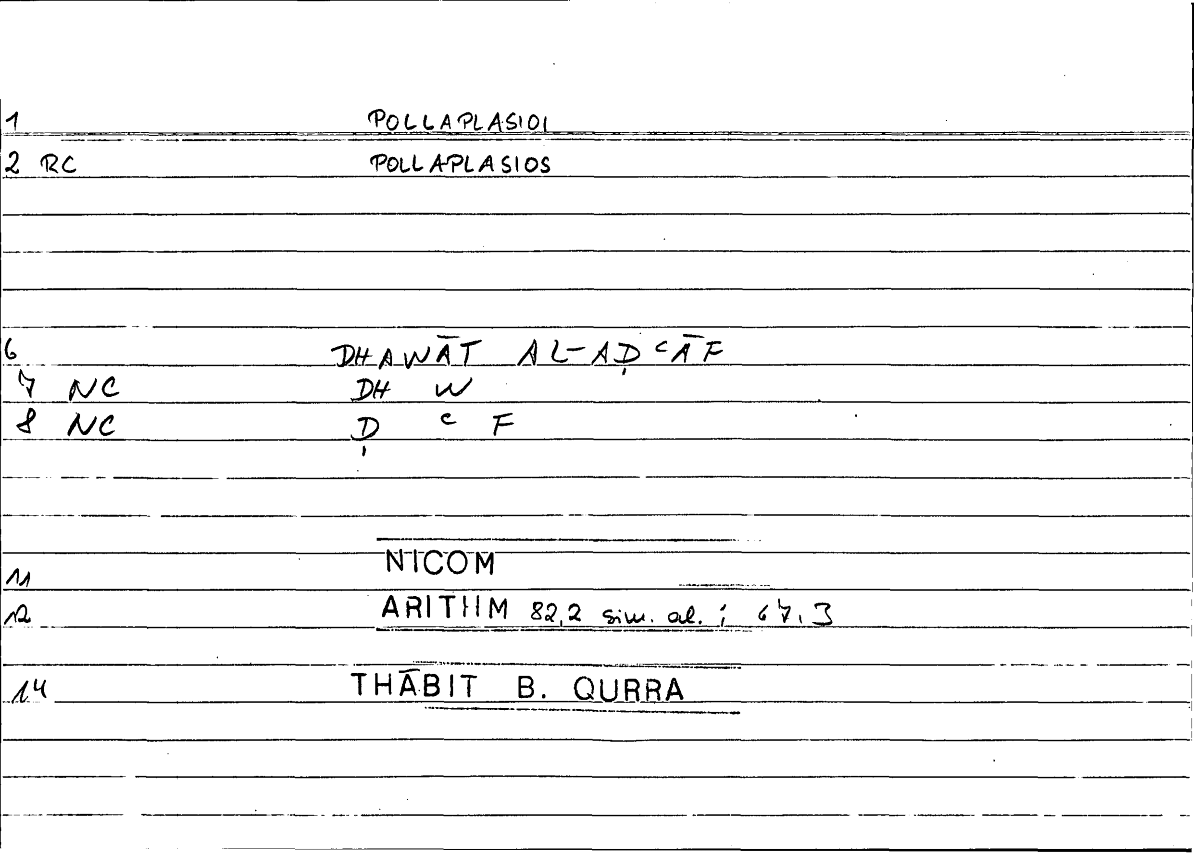 1 POLLAPLASIOI
2 RC POLLAPLASIOS
6 DHAWĀT AL-AḌ ᶜĀF
7 NC DH W
8 NC Ḍ ᶜ F
11 NICOM
12 ARITHM 82,2 sim. al. ; 67,3
14 THĀBIT B. QURRA